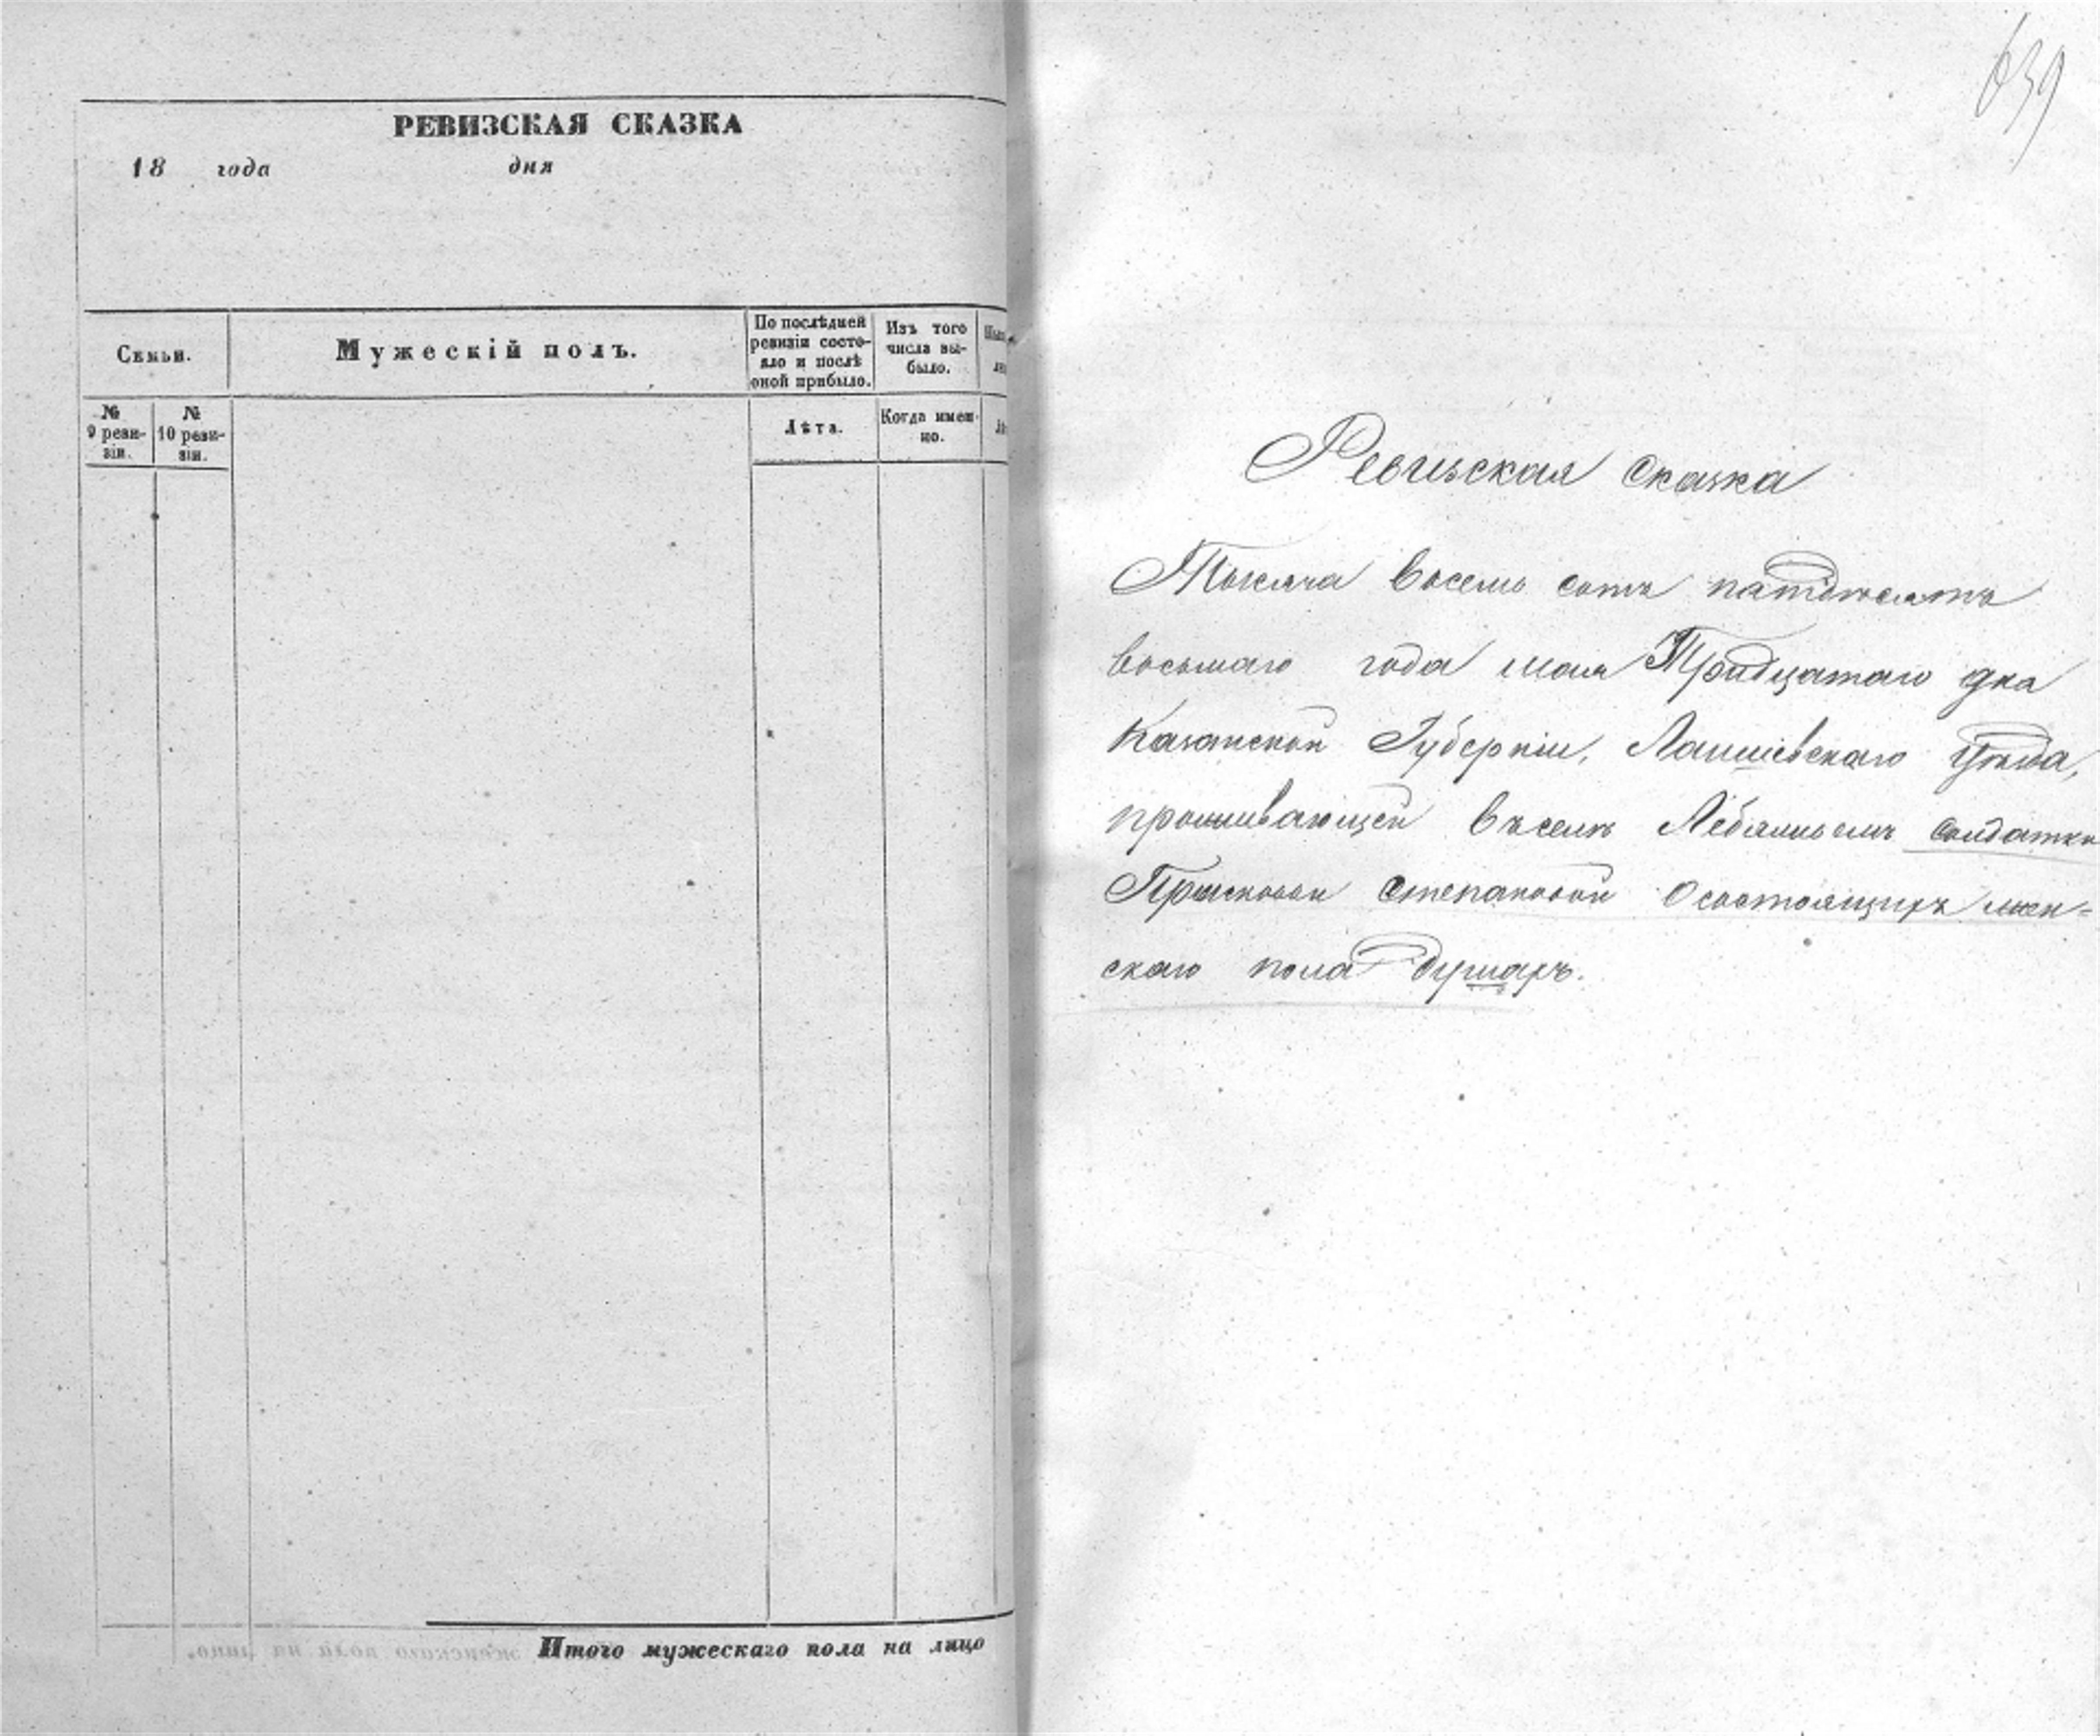 РЕВИЗСКАЯ СКАЗКА
18 года дня
Семьи.
Мужескій полъ.
По послѣдней
ревизіи состо-
яло и послѣ
оной прибыло.
Изъ того
числа вы-
было.
№
9 реви-
зіи.
№
10 реви-
зіи.
Лѣта.
Когда имен-
но.
Итого мужескаго пола на лицо
женскаго пола на лицо.
639
Ревизская сказка
Тысяча восемь сотъ пятдесятъ
восьмаго года мая Тридцатаго дня
Казанской Губерніи, Лаишевскаго Уѣзда,
проживающей въ селѣ солдатки
Прасковьи Степановой о состоящихъ жен=
скаго пола душахъ.